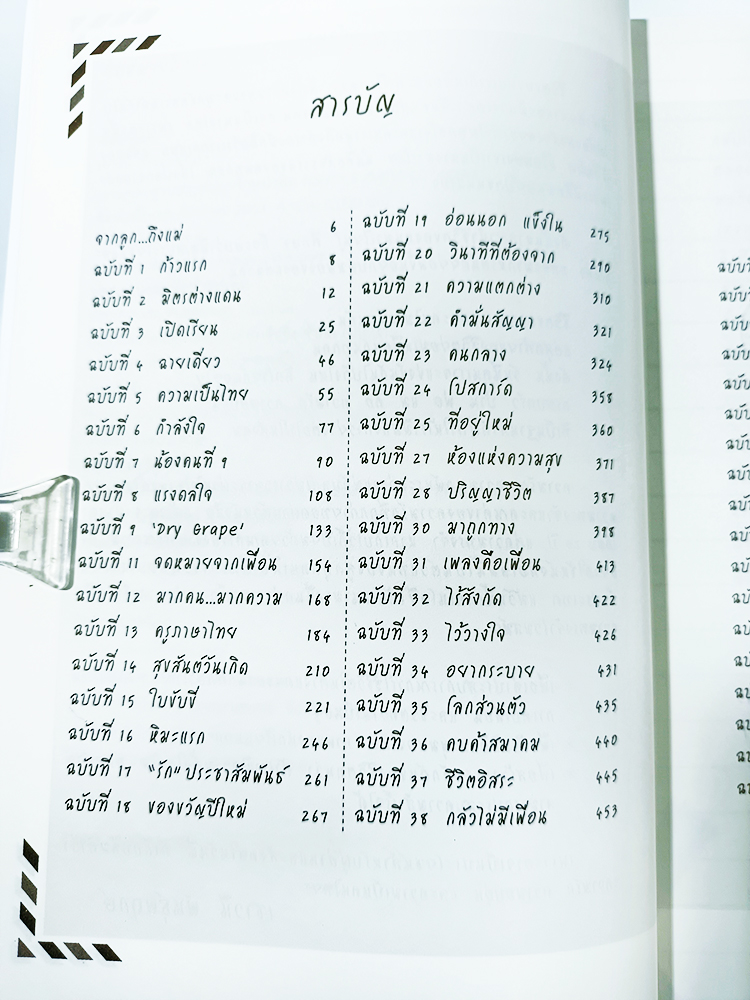 สารบัญ
จากลูก...ถึงแม่ 6
ฉบับที่ 1 ก้าวแรก 8
ฉบับที่ 2 มิตรต่างแดน 12
ฉบับที่ 3 เปิดเรียน 25
ฉบับที่ 4 ฉายเดี่ยว 46
ฉบับที่ 5 ความเป็นไทย 55
ฉบับที่ 6 กำลังใจ 77
ฉบับที่ 7 น้องคนที่ 9 90
ฉบับที่ 8 แรงดลใจ 108
ฉบับที่ 9 'Dry Grape' 133
ฉบับที่ 11 จดหมายจากเพื่อน 154
ฉบับที่ 12 มากคน...มากความ 168
ฉบับที่ 13 ครูภาษาไทย 184
ฉบับที่ 14 สุขสันต์วันเกิด 210
ฉบับที่ 15 ใบขับขี่ 221
ฉบับที่ 16 หิมะแรก 246
ฉบับที่ 17 "รัก" ประชาสัมพันธ์ 261
ฉบับที่ 18 ของขวัญปีใหม่ 267
ฉบับที่ 19 อ่อนนอก แข็งใน 275
ฉบับที่ 20 วินาทีที่ต้องจาก 290
ฉบับที่ 21 ความแตกต่าง 310
ฉบับที่ 22 คำมั่นสัญญา 321
ฉบับที่ 23 คนกลาง 324
ฉบับที่ 24 โปสการ์ด 358
ฉบับที่ 25 ที่อยู่ใหม่ 360
ฉบับที่ 27 ห้องแห่งความสุข 371
ฉบับที่ 28 ปริญญาชีวิต 387
ฉบับที่ 30 มาถูกทาง 398
ฉบับที่ 31 เพลงคือเพื่อน 413
ฉบับที่ 32 ไร้สังกัด 422
ฉบับที่ 33 ไว้วางใจ 426
ฉบับที่ 34 อยากระบาย 431
ฉบับที่ 35 โลกส่วนตัว 435
ฉบับที่ 36 คบค้าสมาคม 440
ฉบับที่ 37 ชีวิตอิสระ 445
ฉบับที่ 38 กลัวไม่มีเพื่อน 453